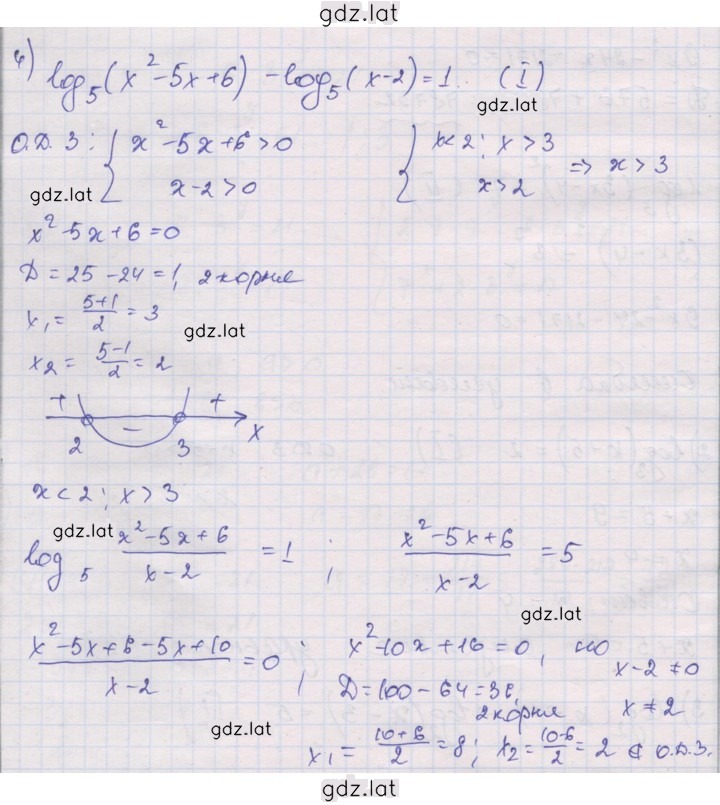 gdz.lat
4) log₅(x²-5x+6) -log₅(x-2)=1. (I)
gdz.lat
О.Д.З: { x²-5x+6>0 { x<2; x>3
x-2>0 x>2 => x>3
gdz.lat
x²-5x+6=0
D=25-24=1, 2 корня
x₁= (5+1)/2 = 3
gdz.lat
x₂= (5-1)/2 = 2
+ - +
2 3 x
x<2; x>3
gdz.lat
log₅ (x²-5x+6)/(x-2) = 1 ; (x²-5x+6)/(x-2) = 5
gdz.lat
(x²-5x+6-5x+10)/(x-2) = 0 ; x²-10x+16=0, но
x-2≠0
D=100-64=36,
2 корня x≠2
gdz.lat
x₁= (10+6)/2 = 8; x₂= (10-6)/2 = 2 ∉ О.Д.З.
gdz.lat